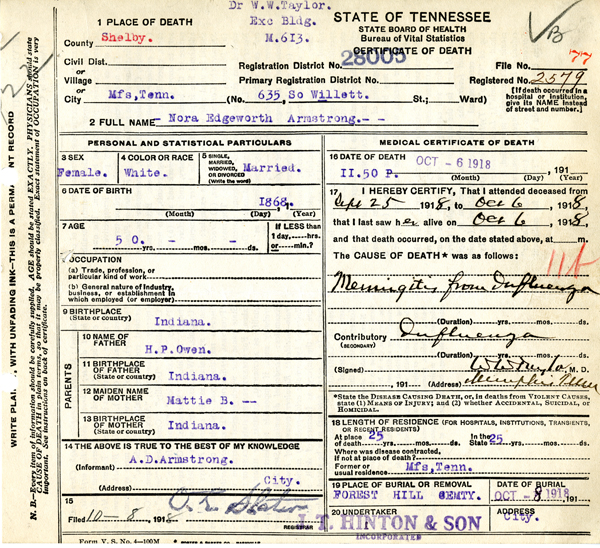 Dr W.W.Taylor.
Exc Bldg.
M.613.
1 PLACE OF DEATH
County Shelby.
Civil Dist.
or
Village
or
City Mfs,Tenn. (No. 635, So Willett. St.; Ward)
2 FULL NAME Nora Edgeworth Armstrong.--
STATE OF TENNESSEE
STATE BOARD OF HEALTH
Bureau of Vital Statistics
CERTIFICATE OF DEATH
VB
Registration District No. 28005
File No. 77
Primary Registration District No.
Registered No. 2579
[If death occurred in a hospital or institution, give its NAME instead of street and number.]
WRITE PLAI WITH UNFADING INK—THIS IS A PERMA NT RECORD
N. B.—Every item of information should be carefully supplied. AGE should be stated EXACTLY. PHYSICIANS should state
CAUSE OF DEATH in plain terms, so that it may be properly classified. Exact statement of OCCUPATION is very
important. See instructions on back of certificate.
PERSONAL AND STATISTICAL PARTICULARS
3 SEX
Female.
4 COLOR OR RACE
White.
5 SINGLE, MARRIED, WIDOWED, OR DIVORCED
(Write the word)
Married.
6 DATE OF BIRTH
1868.
(Month) (Day) (Year)
7 AGE
50 - -
yrs. mos. ds.
If LESS than
1 day, hrs.
or min.?
8 OCCUPATION
(a) Trade, profession, or
particular kind of work
(b) General nature of industry,
business, or establishment in
which employed (or employer)
9 BIRTHPLACE
(State or country)
Indiana.
PARENTS
10 NAME OF
FATHER
H.P.Owen.
11 BIRTHPLACE
OF FATHER
(State or country)
Indiana.
12 MAIDEN NAME
OF MOTHER
Mattie B. --
13 BIRTHPLACE
OF MOTHER
(State or country)
Indiana.
14 THE ABOVE IS TRUE TO THE BEST OF MY KNOWLEDGE
(Informant) A.D.Armstrong.
(Address) City.
15
Filed 10-8, 1918
REGISTRAR
Form V. S. No. 4—100M
MEDICAL CERTIFICATE OF DEATH
16 DATE OF DEATH OCT -6 1918
11.50 P. , 191
(Month) (Day) (Year)
17 I HEREBY CERTIFY, That I attended deceased from
Sept 25 1918, to Oct 6 1918,
that I last saw her alive on Oct 6 1918,
and that death occurred, on the date stated above, at m.
The CAUSE OF DEATH* was as follows:
11b
Meningitis from Influenza
(Duration) yrs. mos. ds.
Contributory Influenza
(SECONDARY)
(Duration) yrs. mos. ds.
(Signed) W W Taylor M. D.
, 191 (Address) Memphis Tenn
*State the DISEASE CAUSING DEATH, or, in deaths from VIOLENT CAUSES, state (1) MEANS OF INJURY; and (2) whether ACCIDENTAL, SUICIDAL, or HOMICIDAL.
18 LENGTH OF RESIDENCE (FOR HOSPITALS, INSTITUTIONS, TRANSIENTS, OR RECENT RESIDENTS)
At place 25 In the 25
of death yrs. mos. ds. State yrs. mos. ds.
Where was disease contracted,
If not at place of death?
Former or
usual residence Mfs,Tenn.
19 PLACE OF BURIAL OR REMOVAL
FOREST HILL CEMTY.
DATE OF BURIAL
OCT 8 1918
20 UNDERTAKER
J. T. HINTON & SON
INCORPORATED
ADDRESS
City.